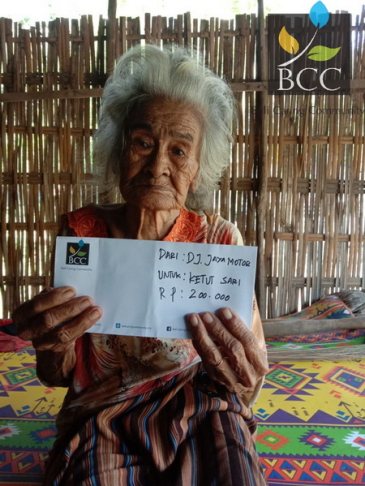 BCC
BCC
DARI : D.J. JAYA MOTOR
UNTUK : KETUT SARI
R P : 200.000